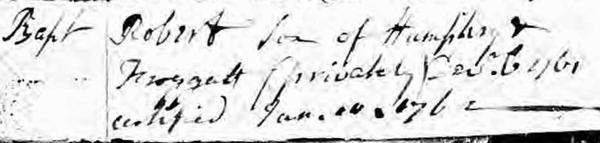 Bapt Robert Son of Humphry &
Froggatt (privately) Decr. 6 1761
certified Jan. 1762